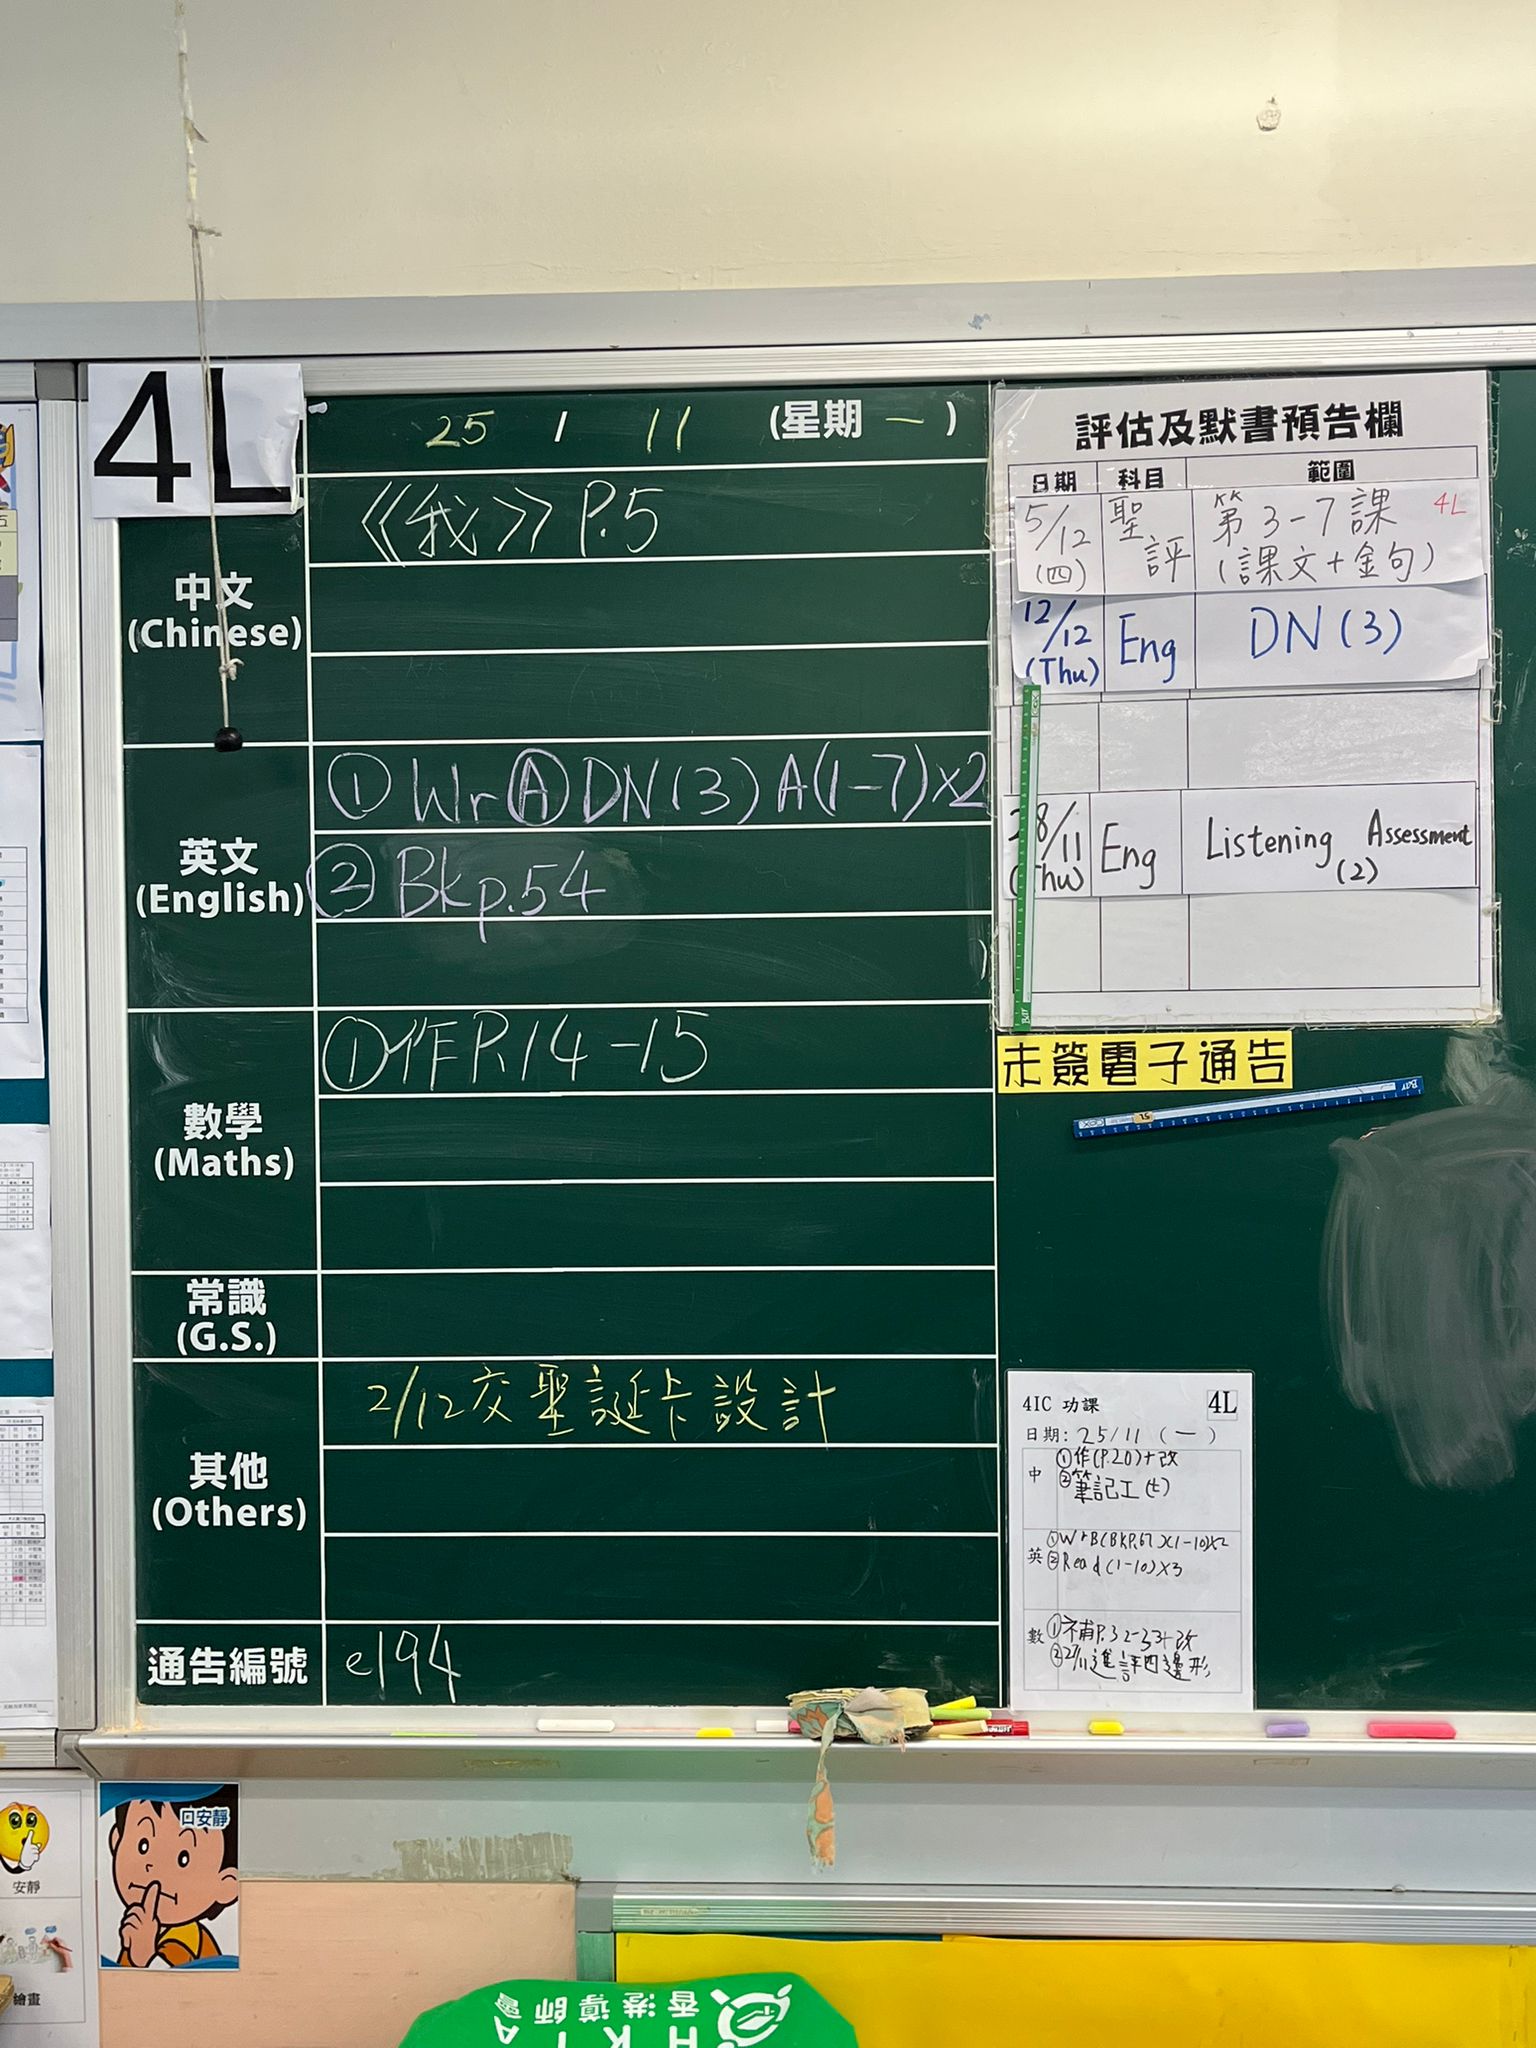 4L
25 / 11 (星期 一 )
中文
(Chinese)
《我》 P.5
英文
(English)
① Wr Ⓐ DN(3) A(1-7)×2
② Bk p.54
數學
(Maths)
①作P.14-15
常識
(G.S.)
其他
(Others)
2/12交聖誕卡設計
通告編號
e194
評估及默書預告欄
日期 科目 範圍
5/12 (四) 聖評 第3-7課 (課文+金句) 4L
12/12 (Thu) Eng DN(3)
28/11 (Thu) Eng Listening Assessment (2)
未簽電子通告
4IC 功課 4L
日期: 25/11 (一)
中 ①作(P.20)+改
②筆記工(七)
英 ①WrB(BKP.67)(1-10)×2
②Read(1-10)×3
數 ①補P.32-33+改
②27/11進評四邊形
口安靜
安靜
繪畫
香港導師會
HKTA